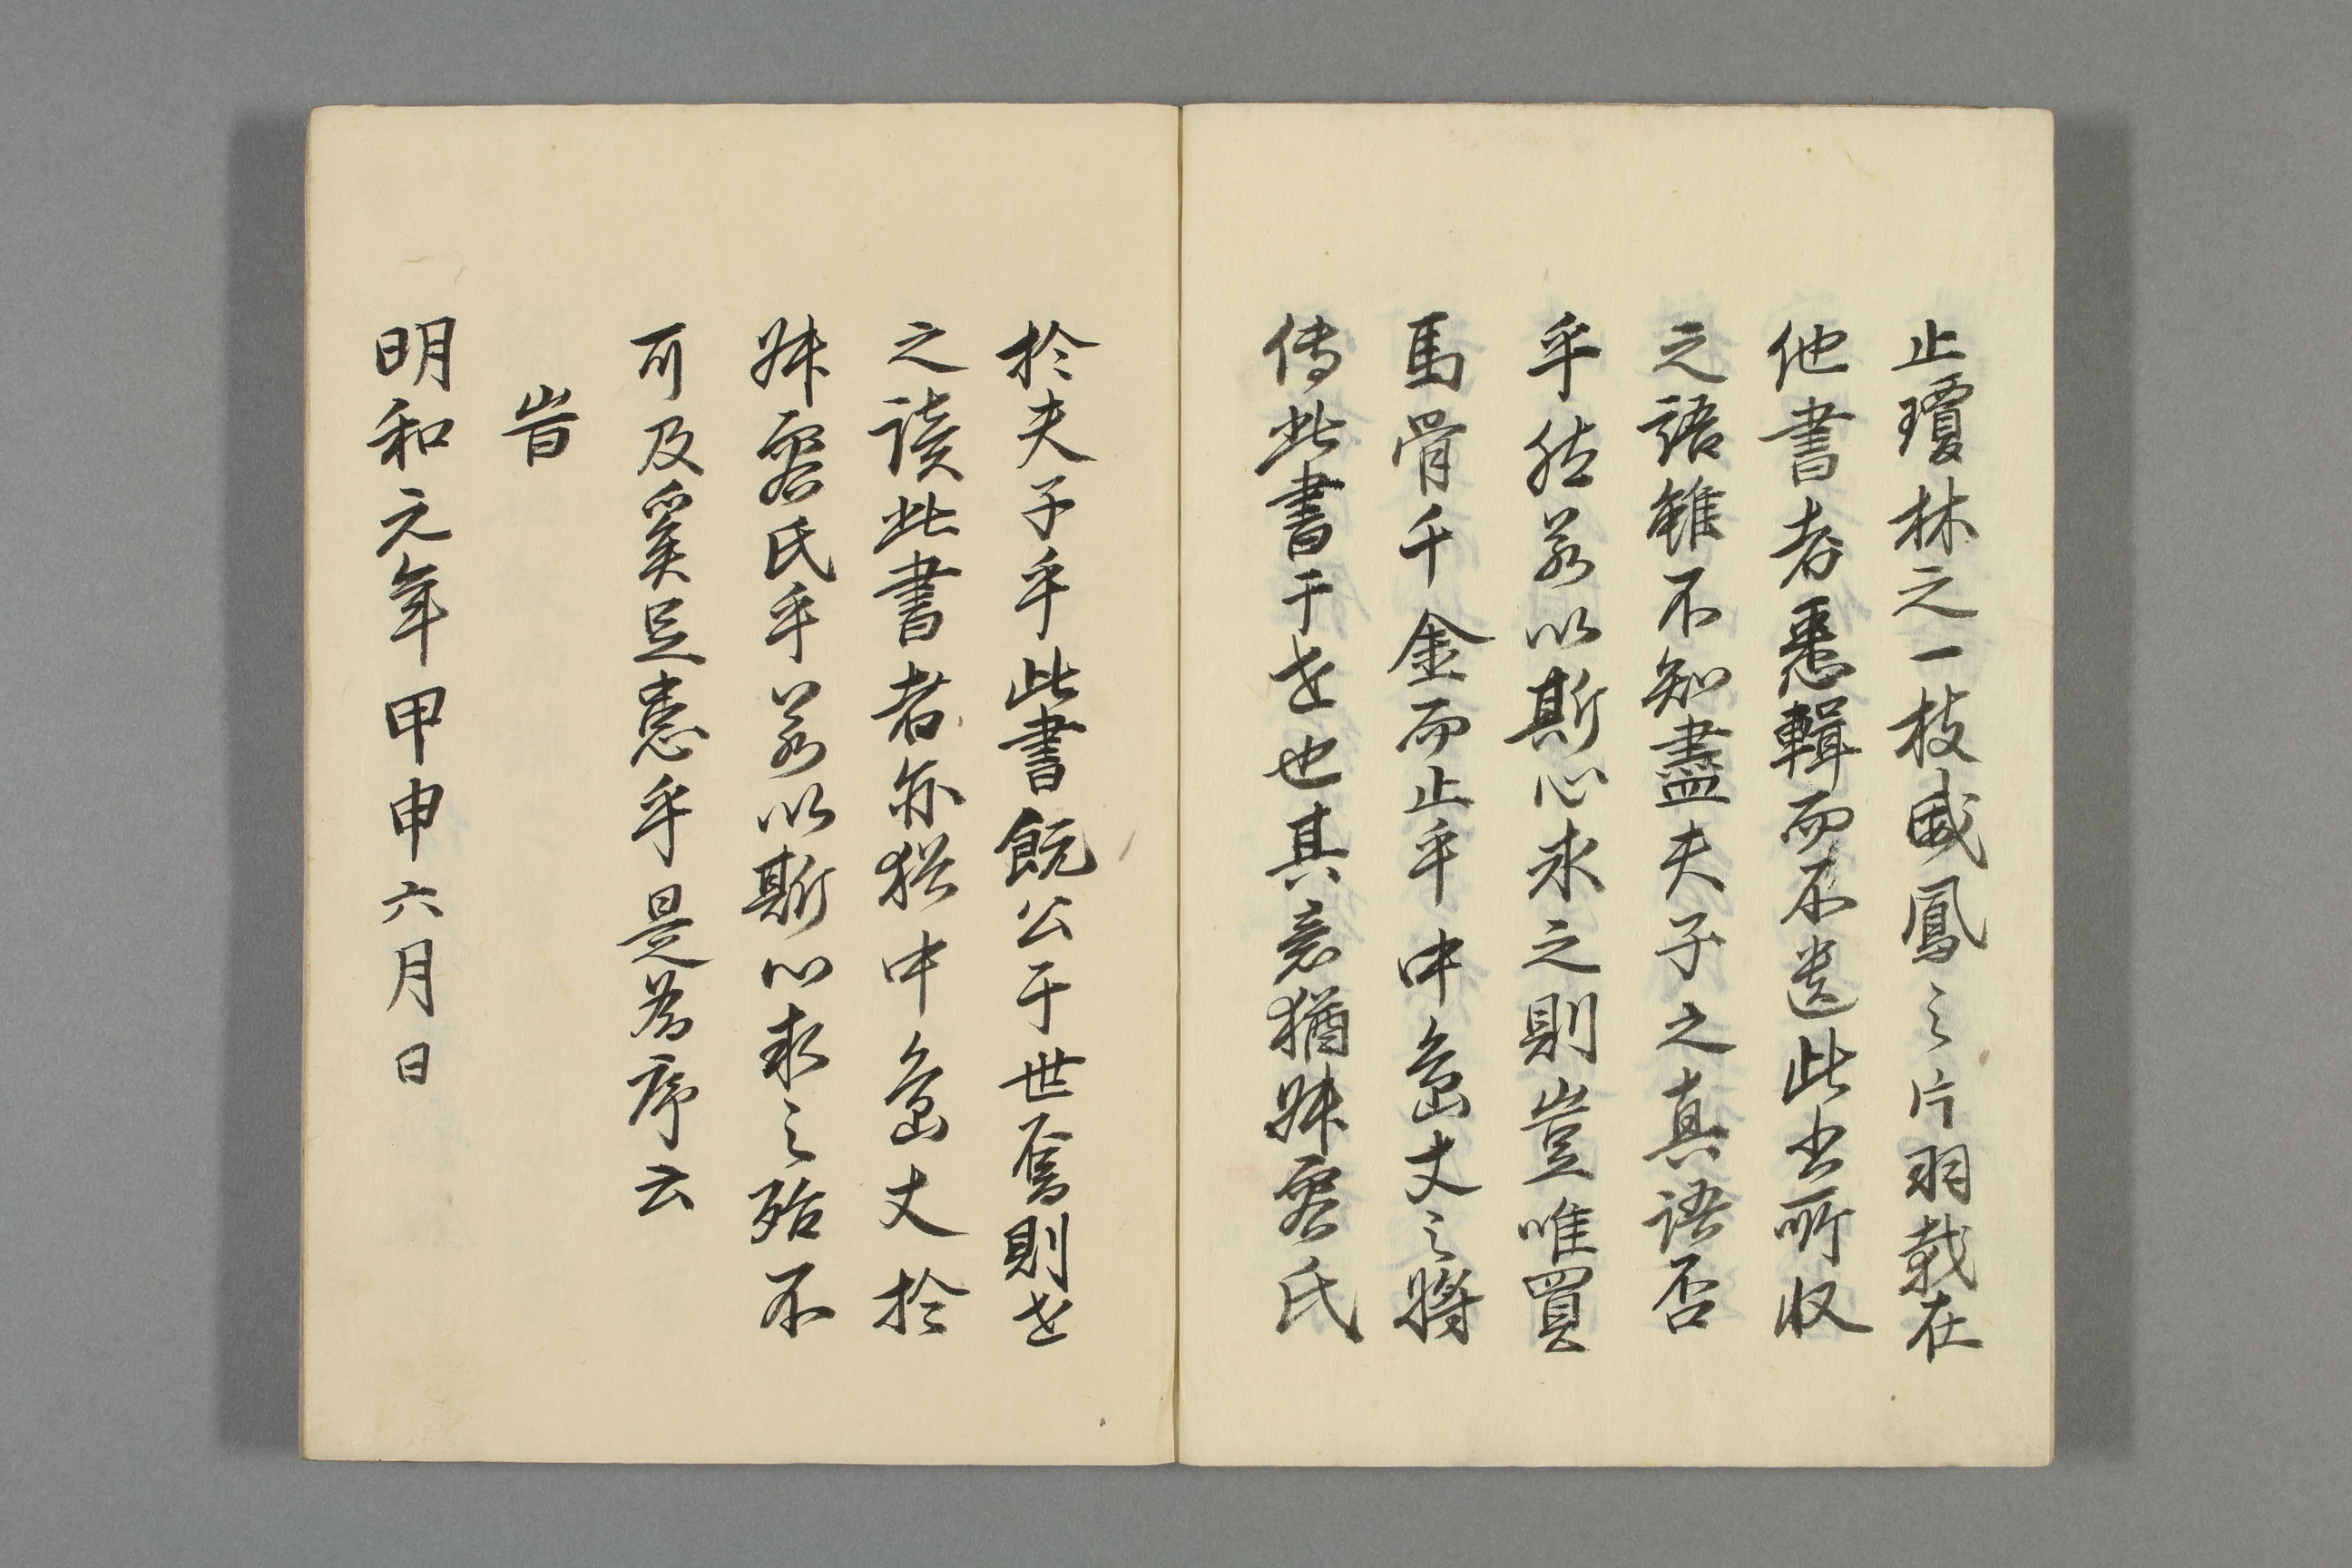 止瓊林之一枝威鳳之片羽載在
他書者悉輯而不遺此書所収
之語雖不知盡夫子之真語否
乎然若以斯心求之則豈唯買
馬骨千金而止乎中島丈之將
傳此書于世也其意猶叔容氏
於夫子乎此書既公于世焉則世
之讀此書者亦猶中島丈於
叔容氏乎若以斯心求之殆不
可及奚足患乎是為序云
旹
明和元年甲申六月日